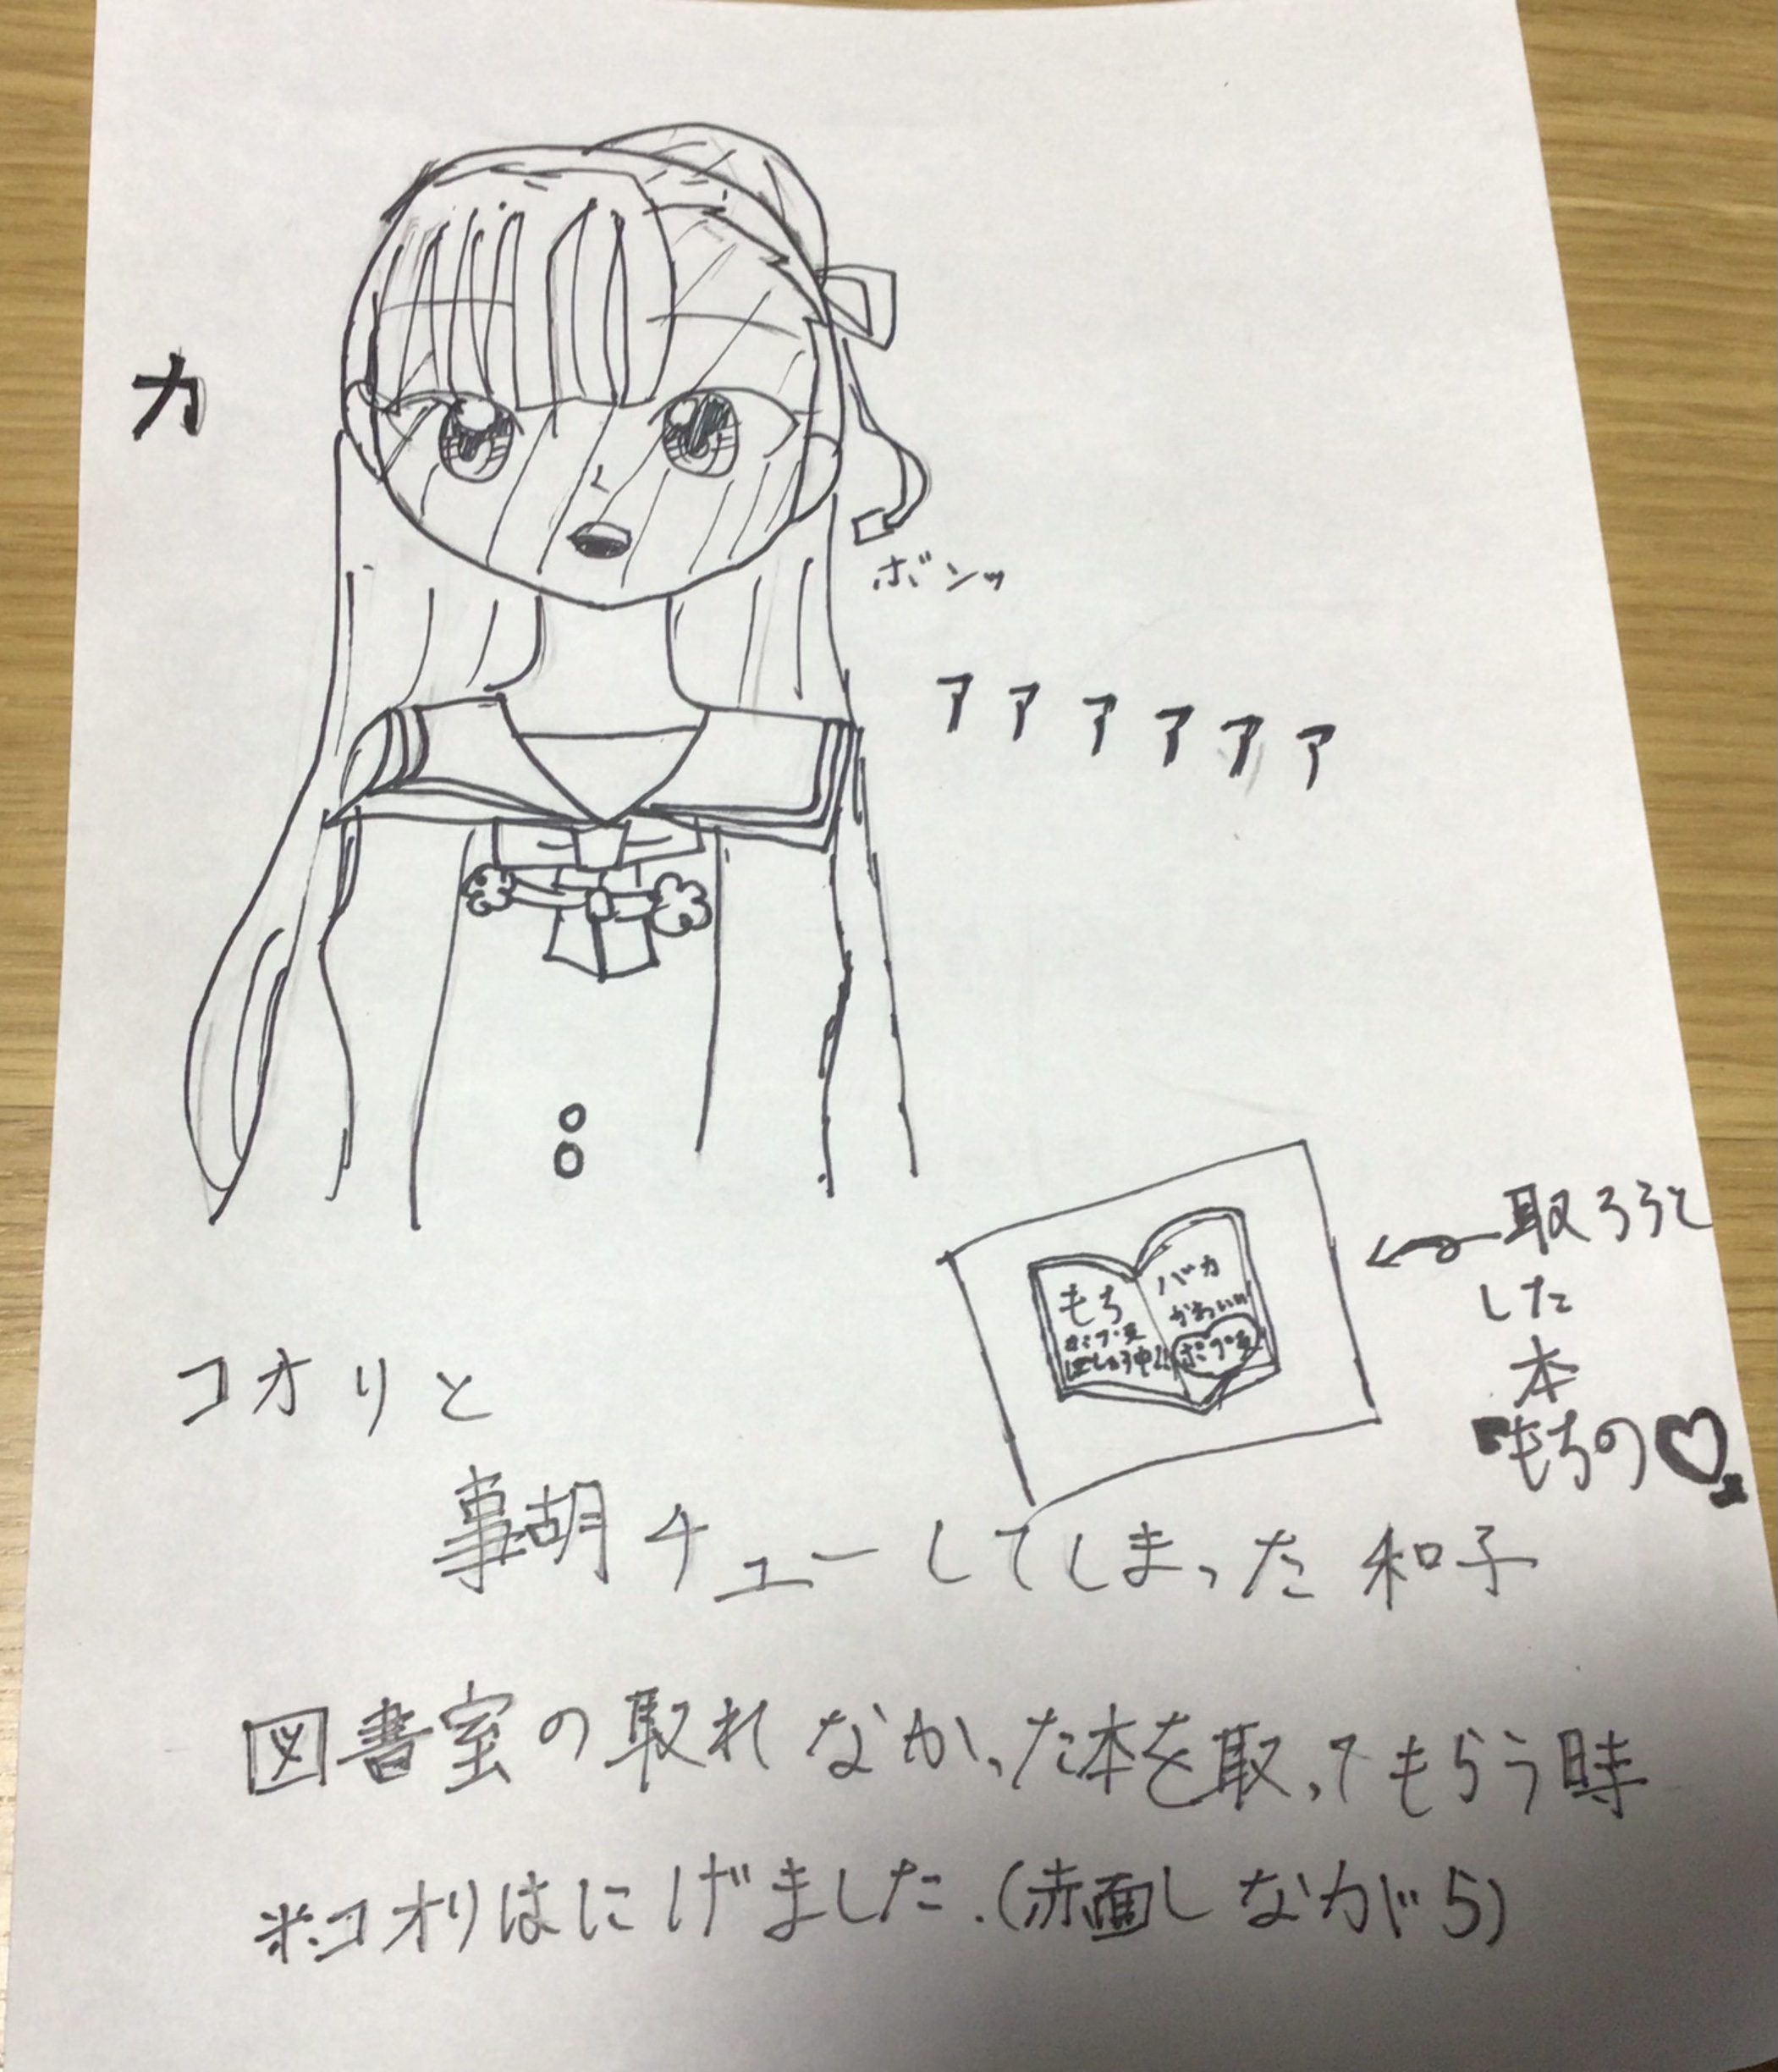 カ
ボンッ
アアアアアア
取ろうと
した
本
もちの♡
もち
バカ
かわいい
コオリと
事胡チューしてしまった和子
図書室の取れなかった本を取ってもらう時
※コオリはにげました.(赤面しながら)